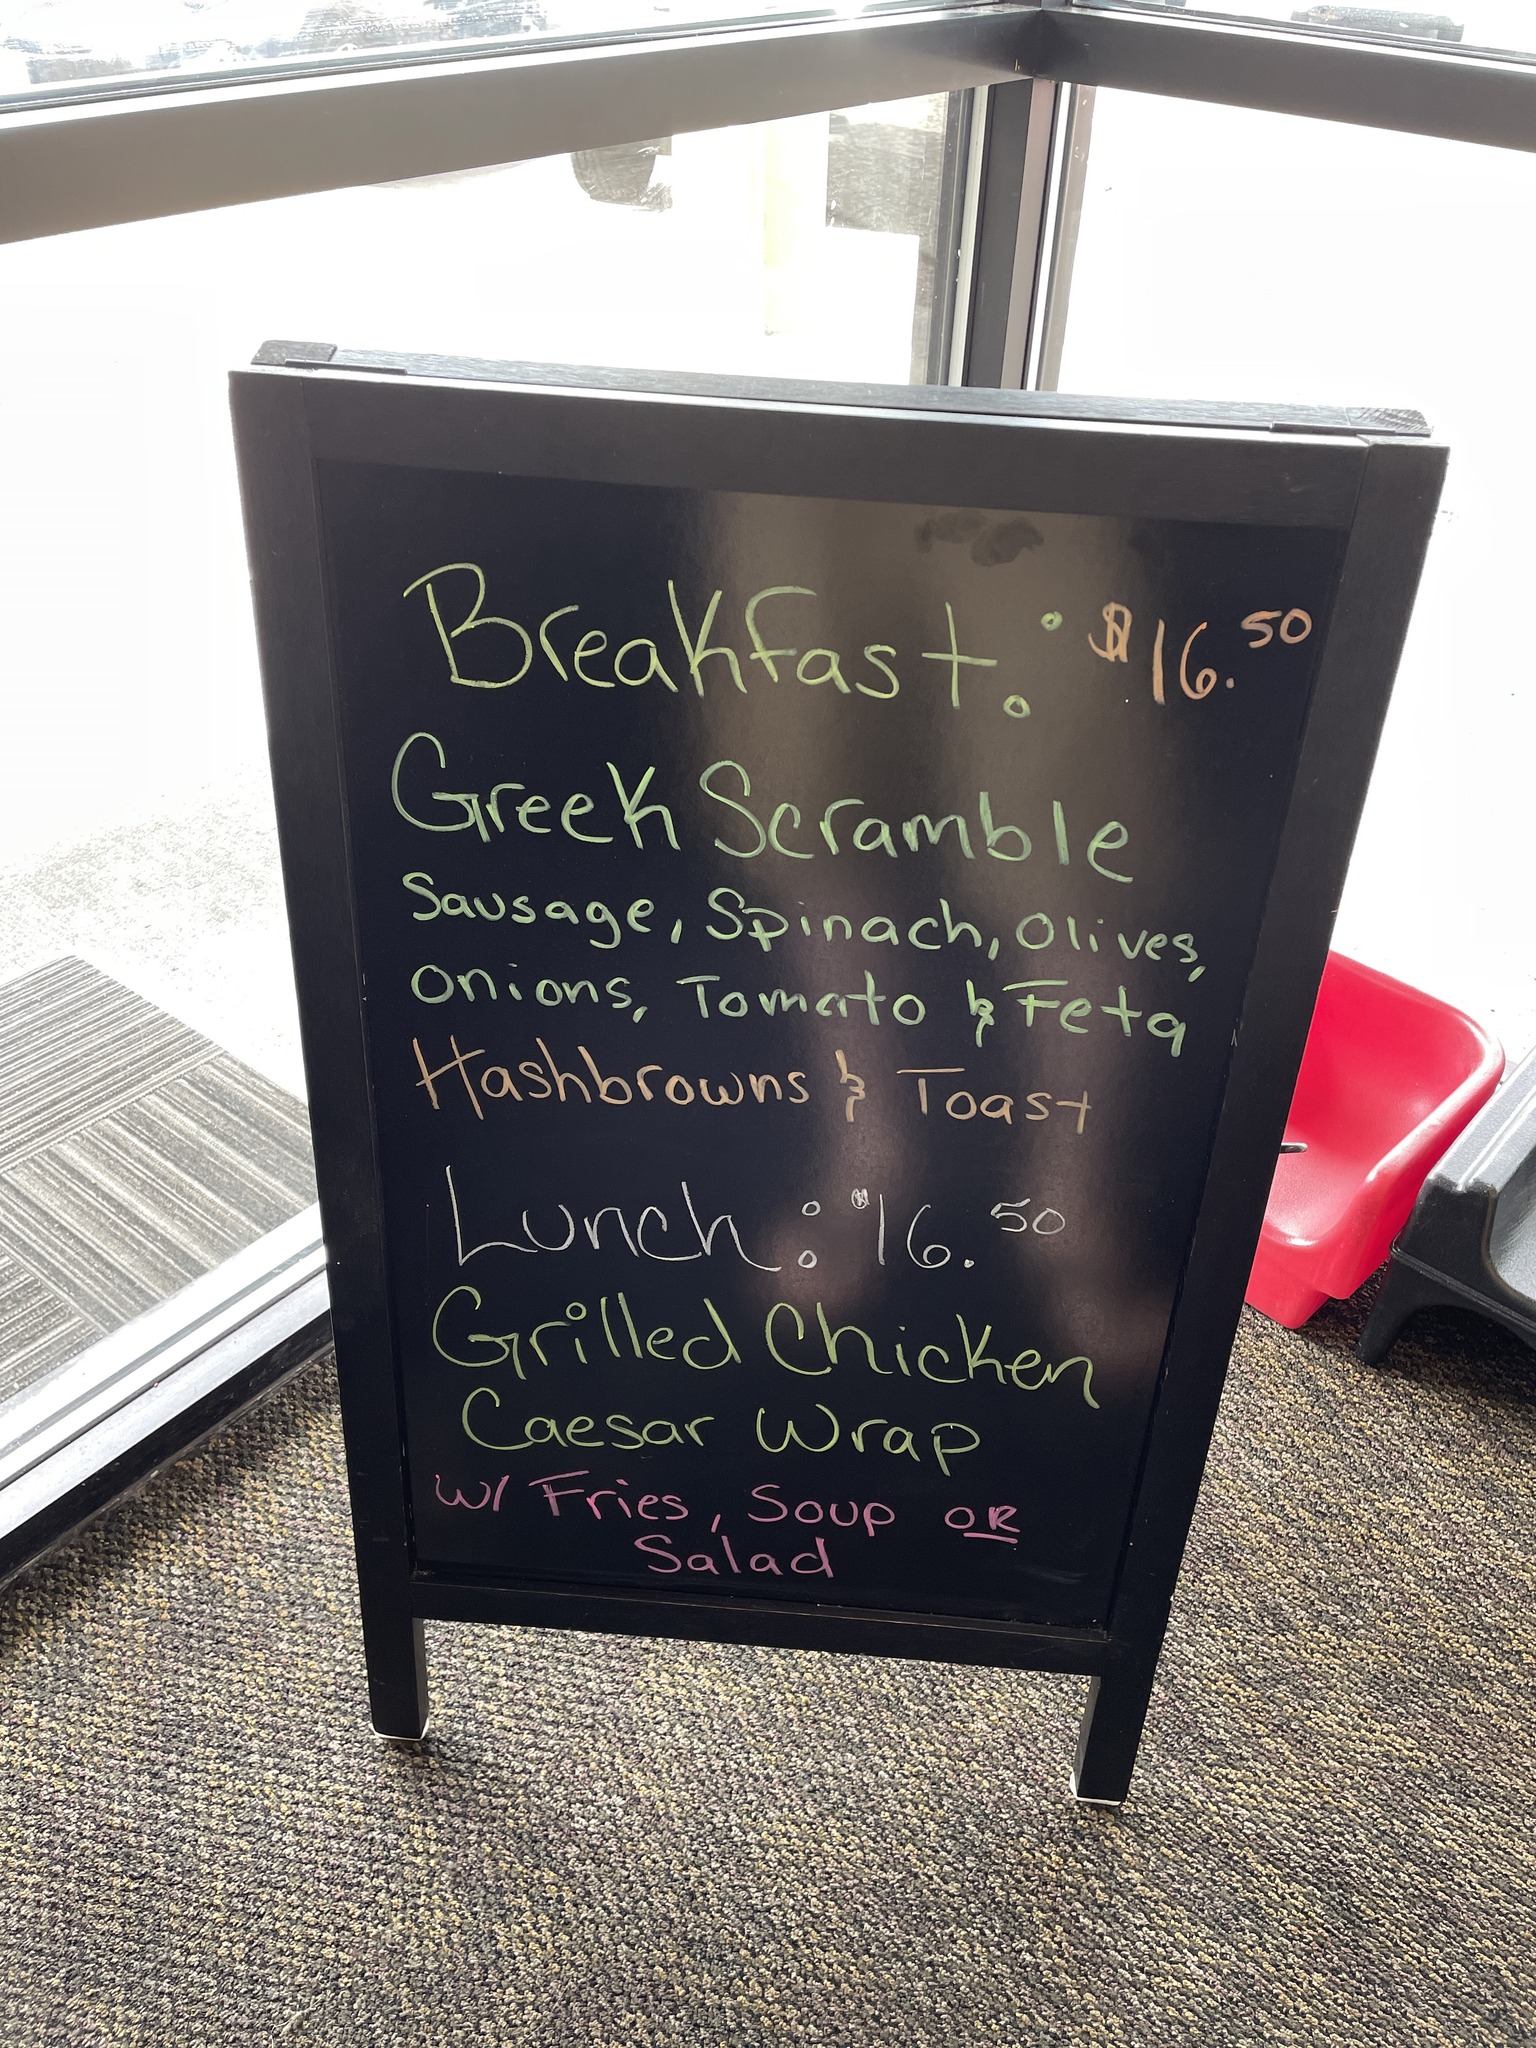 Breakfast: $16.50
Greek Scramble
Sausage, Spinach, Olives,
Onions, Tomato & Feta
Hashbrowns & Toast
Lunch: $16.50
Grilled Chicken
Caesar Wrap
w/ Fries, Soup OR
Salad